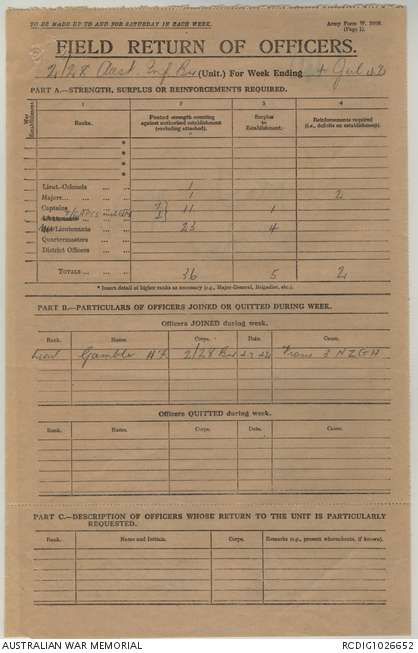 TO BE MADE UP TO AND FOR SATURDAY IN EACH WEEK.
Army Form W. 3008.
(Page 1).
FIELD RETURN OF OFFICERS.
2/28 Aust Inf Bn (Unit.) For Week Ending 4 Jul 42
PART A.—STRENGTH, SURPLUS OR REINFORCEMENTS REQUIRED.
War Establishment
1 2 3 4
Ranks. Posted strength counting against authorized establishment (excluding attached). Surplus to Establishment. Reinforcements required (i.e., deficits on establishment).
*
*
*
*
Lieut.-Colonels ... 1
Majors ... 1 2
Captains ... 11 1
Lieutenants ... 23 4
Quartermasters ...
District Officers ...
TOTALS ... 36 5 2
* Insert detail of higher ranks as necessary (e.g., Major-General, Brigadier, etc.).
PART B.—PARTICULARS OF OFFICERS JOINED OR QUITTED DURING WEEK.
Officers JOINED during week.
Rank. Names. Corps. Date. Cause.
Lieut Gamble 2/28 Bn Trans 3 NZGH
Officers QUITTED during week.
Rank. Names. Corps. Date. Cause.
PART C.—DESCRIPTION OF OFFICERS WHOSE RETURN TO THE UNIT IS PARTICULARLY
REQUESTED.
Rank. Name and Initials. Corps. Remarks (e.g., present whereabouts, if known).
AUSTRALIAN WAR MEMORIAL
RCDIG1026652